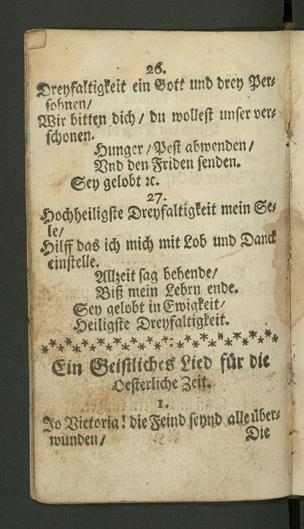 26.
Dreyfaltigkeit ein Gott und drey Per-
sohnen/
Wir bitten dich/ du wollest unser ver-
schonen.
Hunger/ Pest abwenden/
Vnd den Friden senden.
Sey gelobt ꝛc.
27.
Hochheiligste Dreyfaltigkeit mein See-
le/
Hilff das ich mich mit Lob und Danck
einstelle.
Allzeit sag behende/
Biß mein Lebrn ende.
Sey gelobt in Ewigkeit/
Heiligste Dreyfaltigkeit.
Ein Geistliches Lied für die
Oesterliche Zeit.
1.
Jo Victoria! die Feind seynd alle über-
wunden/
Die